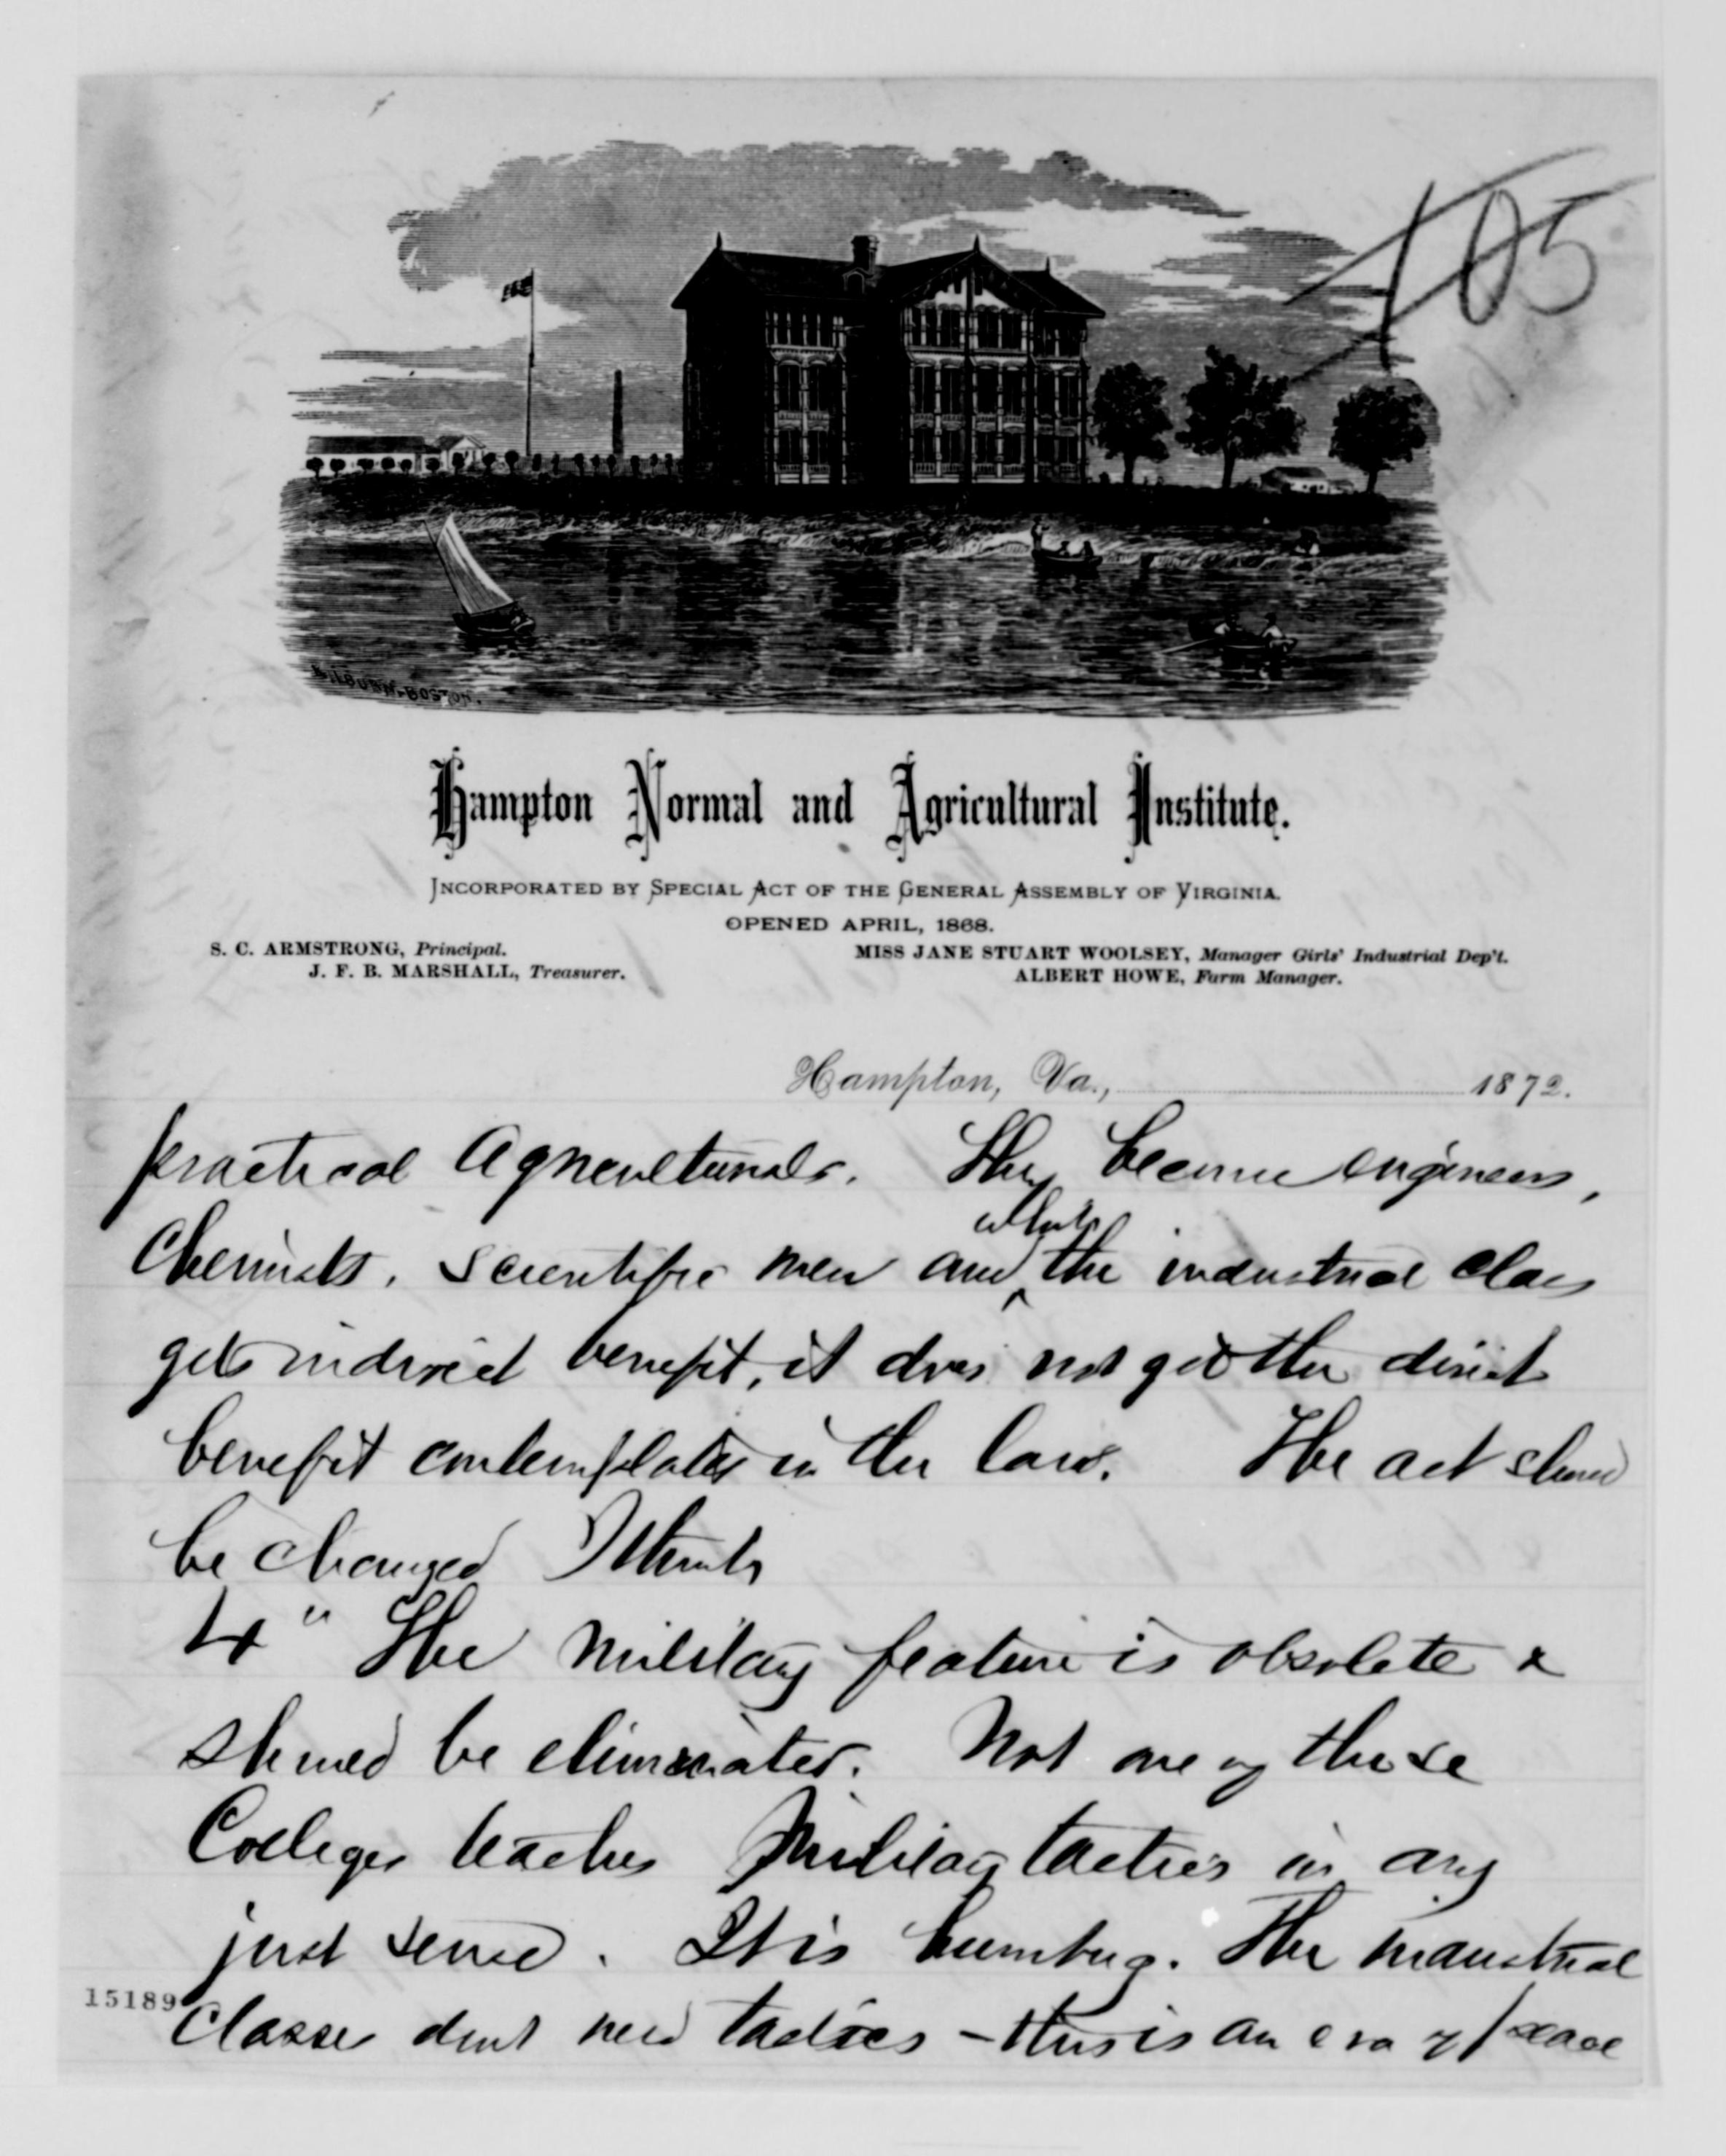 105
KILBURN-BOSTON.
Hampton Normal and Agricultural Institute.
INCORPORATED BY SPECIAL ACT OF THE GENERAL ASSEMBLY OF VIRGINIA.
OPENED APRIL, 1868.
S. C. ARMSTRONG, Principal.
J. F. B. MARSHALL, Treasurer.
MISS JANE STUART WOOLSEY, Manager Girls' Industrial Dep't.
ALBERT HOWE, Farm Manager.
Hampton, Va., 1872.
practical Agriculturals. They become engineers,
Chemists, scientific men and while the industrial class
gets indirect benefit, it does not get the direct
benefit contemplated in the law. The act should
be changed I think
4" The military feature is obsolete &
should be eliminated. Not one of these
Colleges teaches Military tactics in any
just sense. It is humbug. The industrial
15189
Classes dont need tactics - this is an era of peace